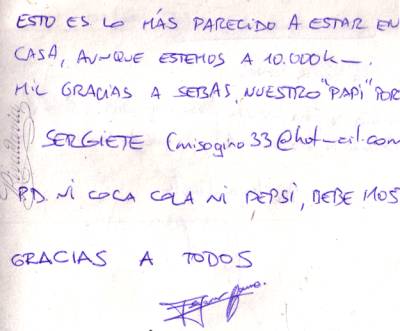 ESTO ES LO MÁS PARECIDO A ESTAR EN
CASA, AUNQUE ESTEMOS A 10.000K—.
MIL GRACIAS A SEBAS, NUESTRO "PAPI" POR
SERGIETE (misogino33@hotmail.com
P.D. NI COCA COLA NI PEPSI, DEBE MOS
GRACIAS A TODOS